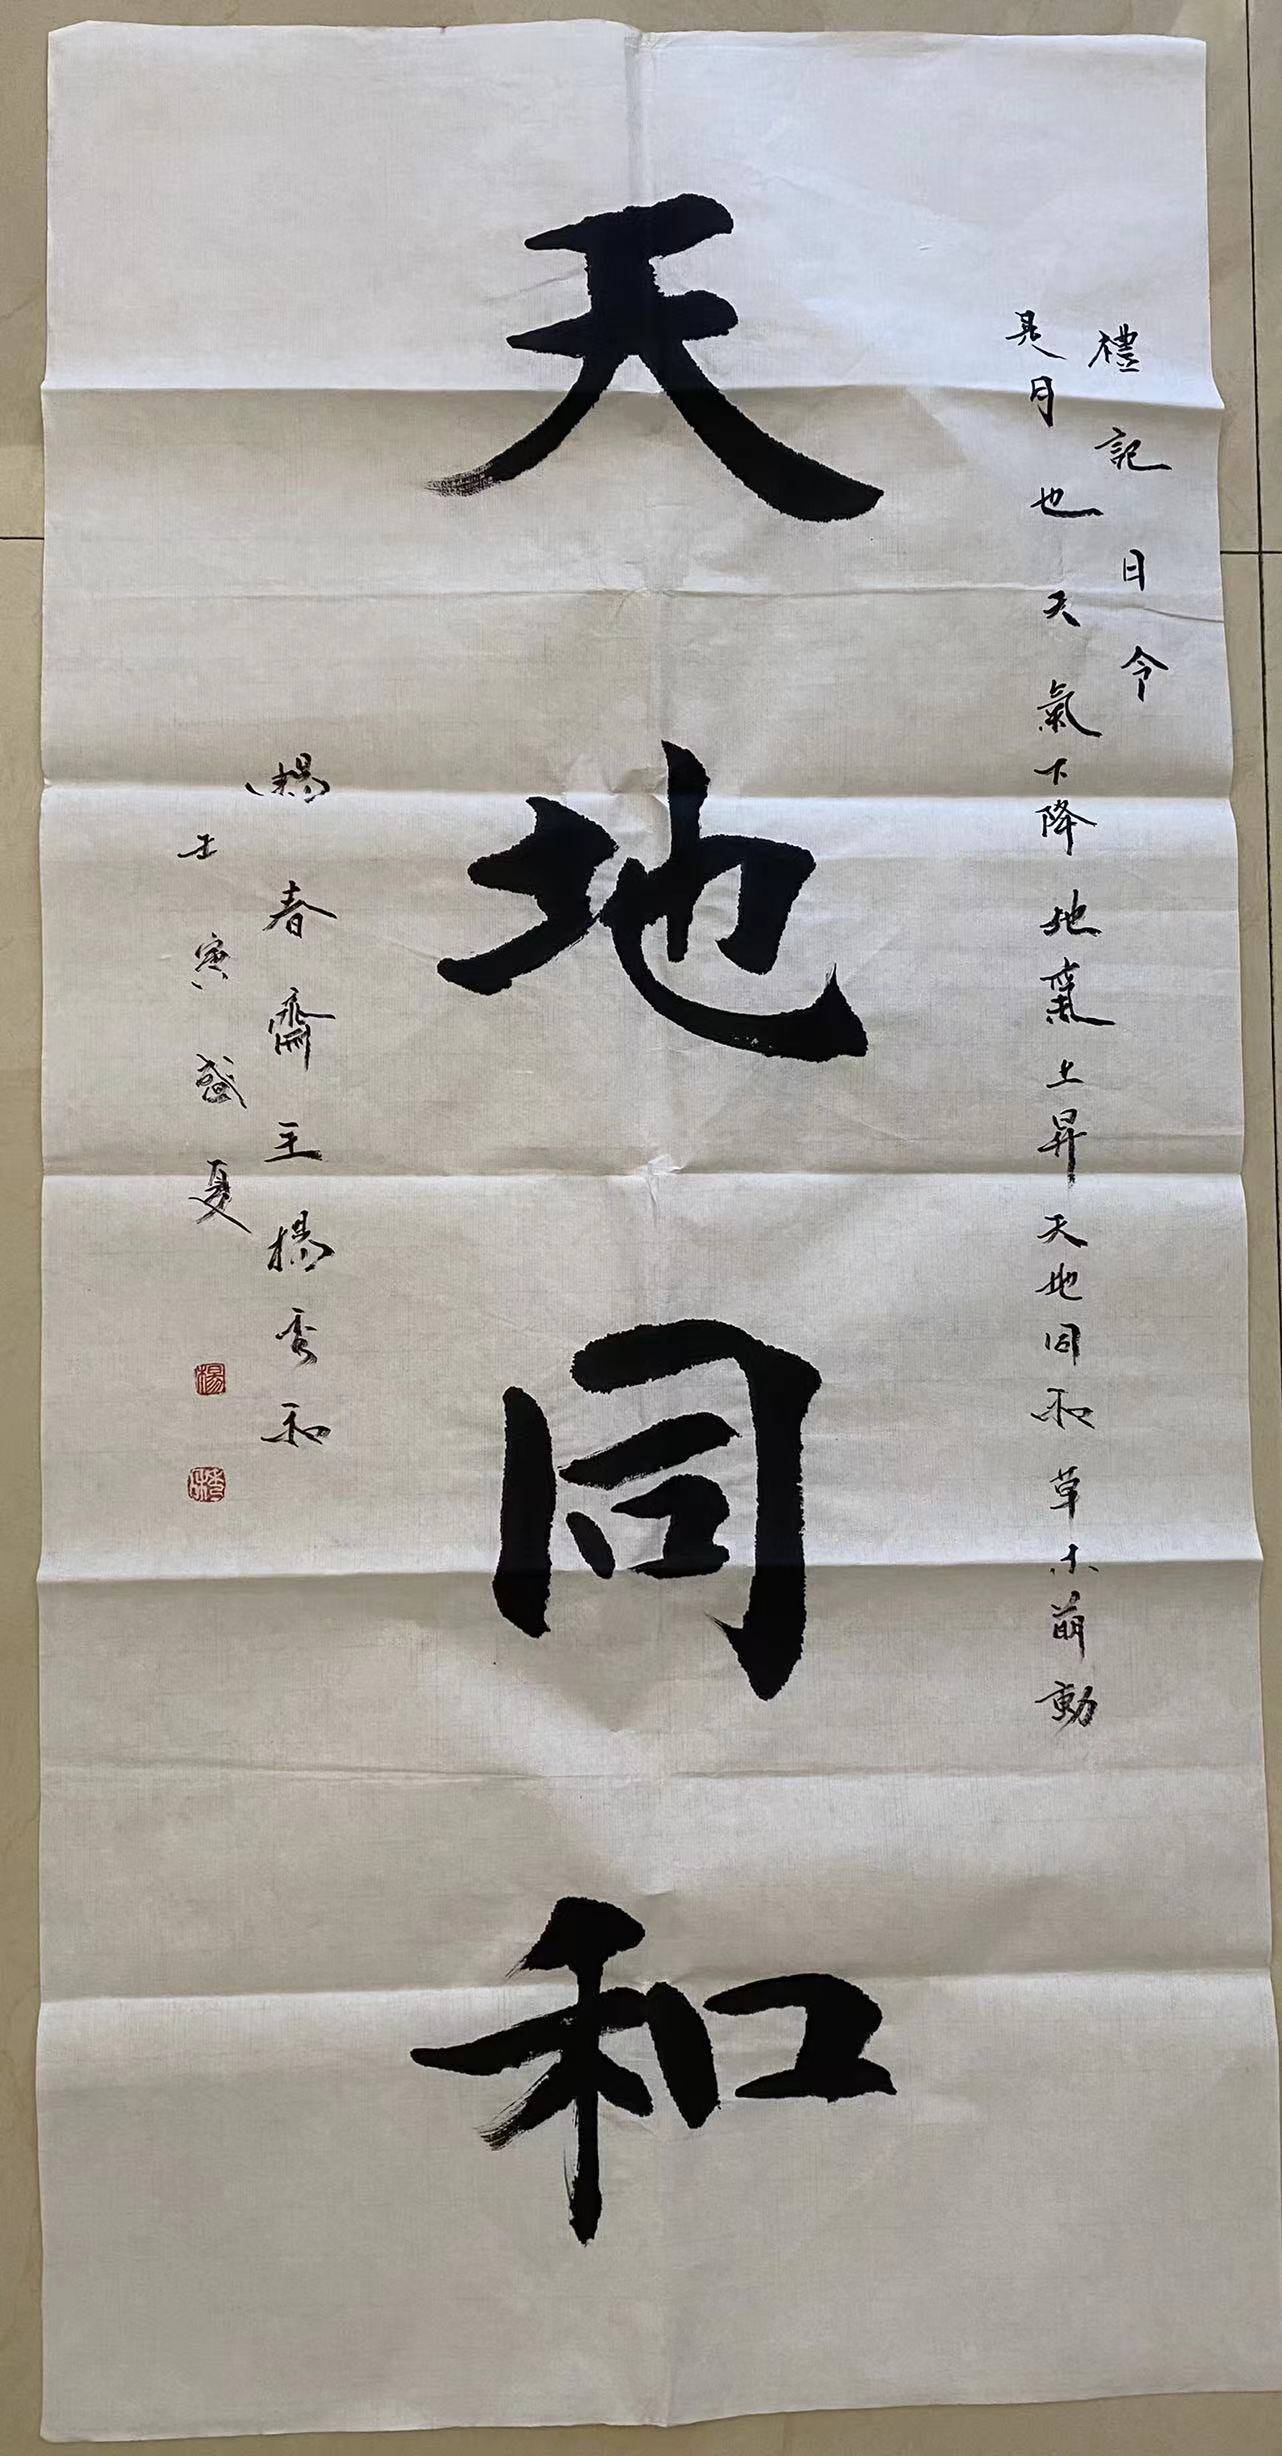 禮記日令
是月也天氣下降地氣上昇天地同和草木萌動
天地同和
春齋主楊秀和
壬寅盛夏
楊